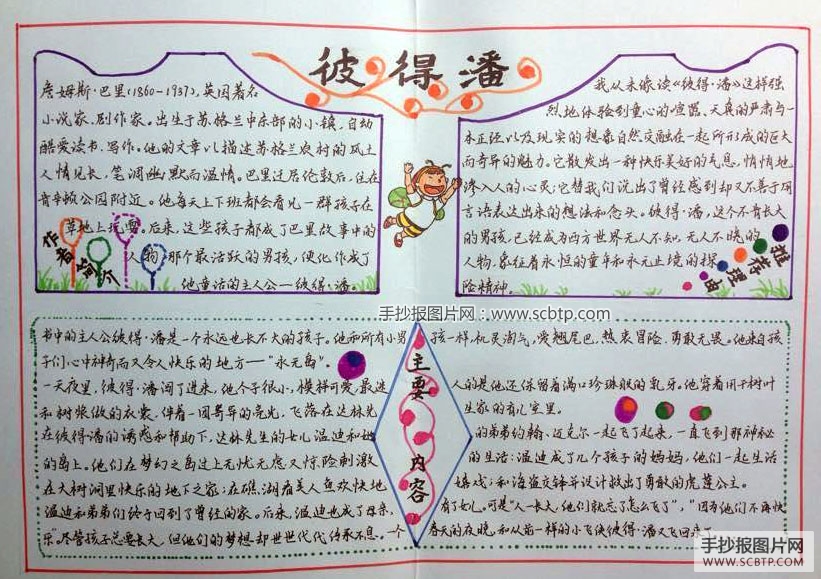 彼得潘
詹姆斯·巴里(1860-1937),英国著名
小说家、剧作家。出生于苏格兰中东部的小镇,自幼
酷爱读书、写作。他的文章以描述苏格兰农村的风土
人情见长,笔调幽默而温情。巴里迁居伦敦后,住在
肯辛顿公园附近。他每天上下班都会看见一群孩子在
草地上玩耍。后来,这些孩子都成了巴里故事中的
人物,那个最活跃的男孩,便化作成了
他童话的主人公—彼得·潘。
作者简介
我从未像读《彼得·潘》这样强
烈地体验到童心的喧嚣、天真的尹肃与一
本正经以及现实的想象自然交融在一起所形成的巨大
而奇异的魅力。它散发出一种快乐美好的气息,悄悄地
渗入人的心灵;它替我们说出了曾经感到却又不善于用
言语表达出来的想法和念头。彼得·潘,这个不肯长大
的男孩,已经成为西方世界无人不知、无人不晓的
人物,象征着永恒的童年和永无止境的探
险精神。
推荐理由
手抄报图片网:www.scbtp.com
书中的主人公彼得·潘是一个永远也长不大的孩子。他和所有小男孩一样,机灵淘气,爱翘尾巴,热衷冒险、勇敢无畏。他来自孩
子们心中神奇而又令人快乐的地方——"永无岛"。
一天夜里,彼得·潘闯了进来,他个子很小,模样可爱,最迷人的是他还保留着满口珍珠般的乳牙。他穿着用干树叶
和树浆做的衣裳,伴着一团奇异的亮光,飞落在达林先生家的育儿室里。
在彼得·潘的诱惑和帮助下,达林先生的女儿温迪和她的弟弟约翰、迈克尔一起飞了起来,一直飞到那神秘
的岛上。他们在梦幻之岛过上无忧无虑又惊险刺激的生活:温迪成了几个孩子的妈妈,他们一起生活
在大树洞里快乐的地下之家;在礁湖看美人鱼欢快地嬉戏;和海盗交锋并设计救出了勇敢的虎莲公主。
温迪和弟弟们终于回到了曾经的家。后来,温迪也成了母亲,有了女儿。可是"人一长大,他们就忘了怎么飞了","因为他们不再快
乐。"尽管孩子总要长大,但他们的梦想却世世代代传承不息。一个春天的夜晚,和从前一样的小飞侠彼得·潘又飞回来了
主要内容
手抄报图片网
WWW.SCBTP.COM